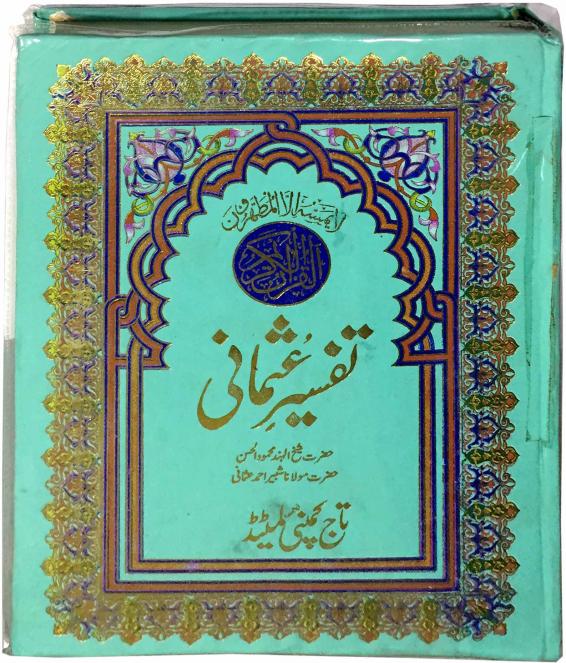 لا یمسہ الا المطہرون
القرآن الکریم
تفسیرِ عُثمانی
حضرت شیخ الہند محمود الحسن
حضرت مولانا شبیر احمد عثمانی
تاج کمپنی لمیٹڈ